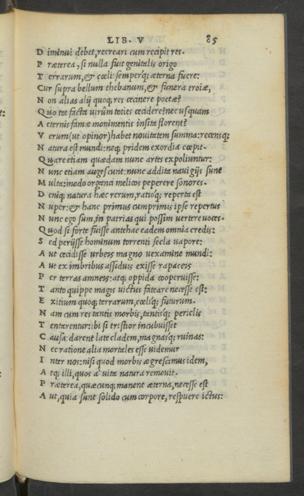 LIB. V 85
D iminui debet, recreari cum recipit res.
P ræterea, si nulla fuit genitalis origo
T errarum, & cœli: semperq; æterna fuere:
C ur supra bellum thebanum, & funera troiæ,
N on alias alij quoq; res cecinere poetæ?
Q uo tot facta virum toties cecidere: nec usquam
A eternis famæ monimentis insita florent?
V erum (ut opinor) habet nouitatem summa: recensq;
N atura est mundi: neq; pridem exordia cœpit.
Q uare etiam quædam nunc artes expoliuntur:
N unc etiam augescunt: nunc addita nauigijs sunt
M ulta: modo organici melicos peperere sonores.
D eniq; natura hæc rerum, ratioq; reperta est
N uper: & hanc primus cumprimis ipse repertus
N unc ego sum, in patrias qui possim uertere uoces.
Q uod si forte fuisse antehac eadem omnia credis:
S ed perijsse hominum torrenti secla uapore:
A ut cecidisse urbeis magno uexamine mundi:
A ut ex imbribus assiduis exisse rapaceis
P er terras amneis: atq; oppida cooperuisse:
T anto quippe magis uictus fateare necesse est:
E xitium quoq; terrarum, cœliq; futurum.
N am cum res tantis morbis, tantisq; periclis
T entarentur: ibi si tristior incubuisset
C ausa: darent late cladem, magnasq; ruinas:
N ec ratione alia mortales esse uidemur
I nter nos: nisi quod morbis ægrescimus isdem,
A tq; illi, quos a' uita natura remouit.
P ræterea, quæcunq; manent æterna, necesse est
A ut, quia sunt solido cum corpore, respuere ictus: